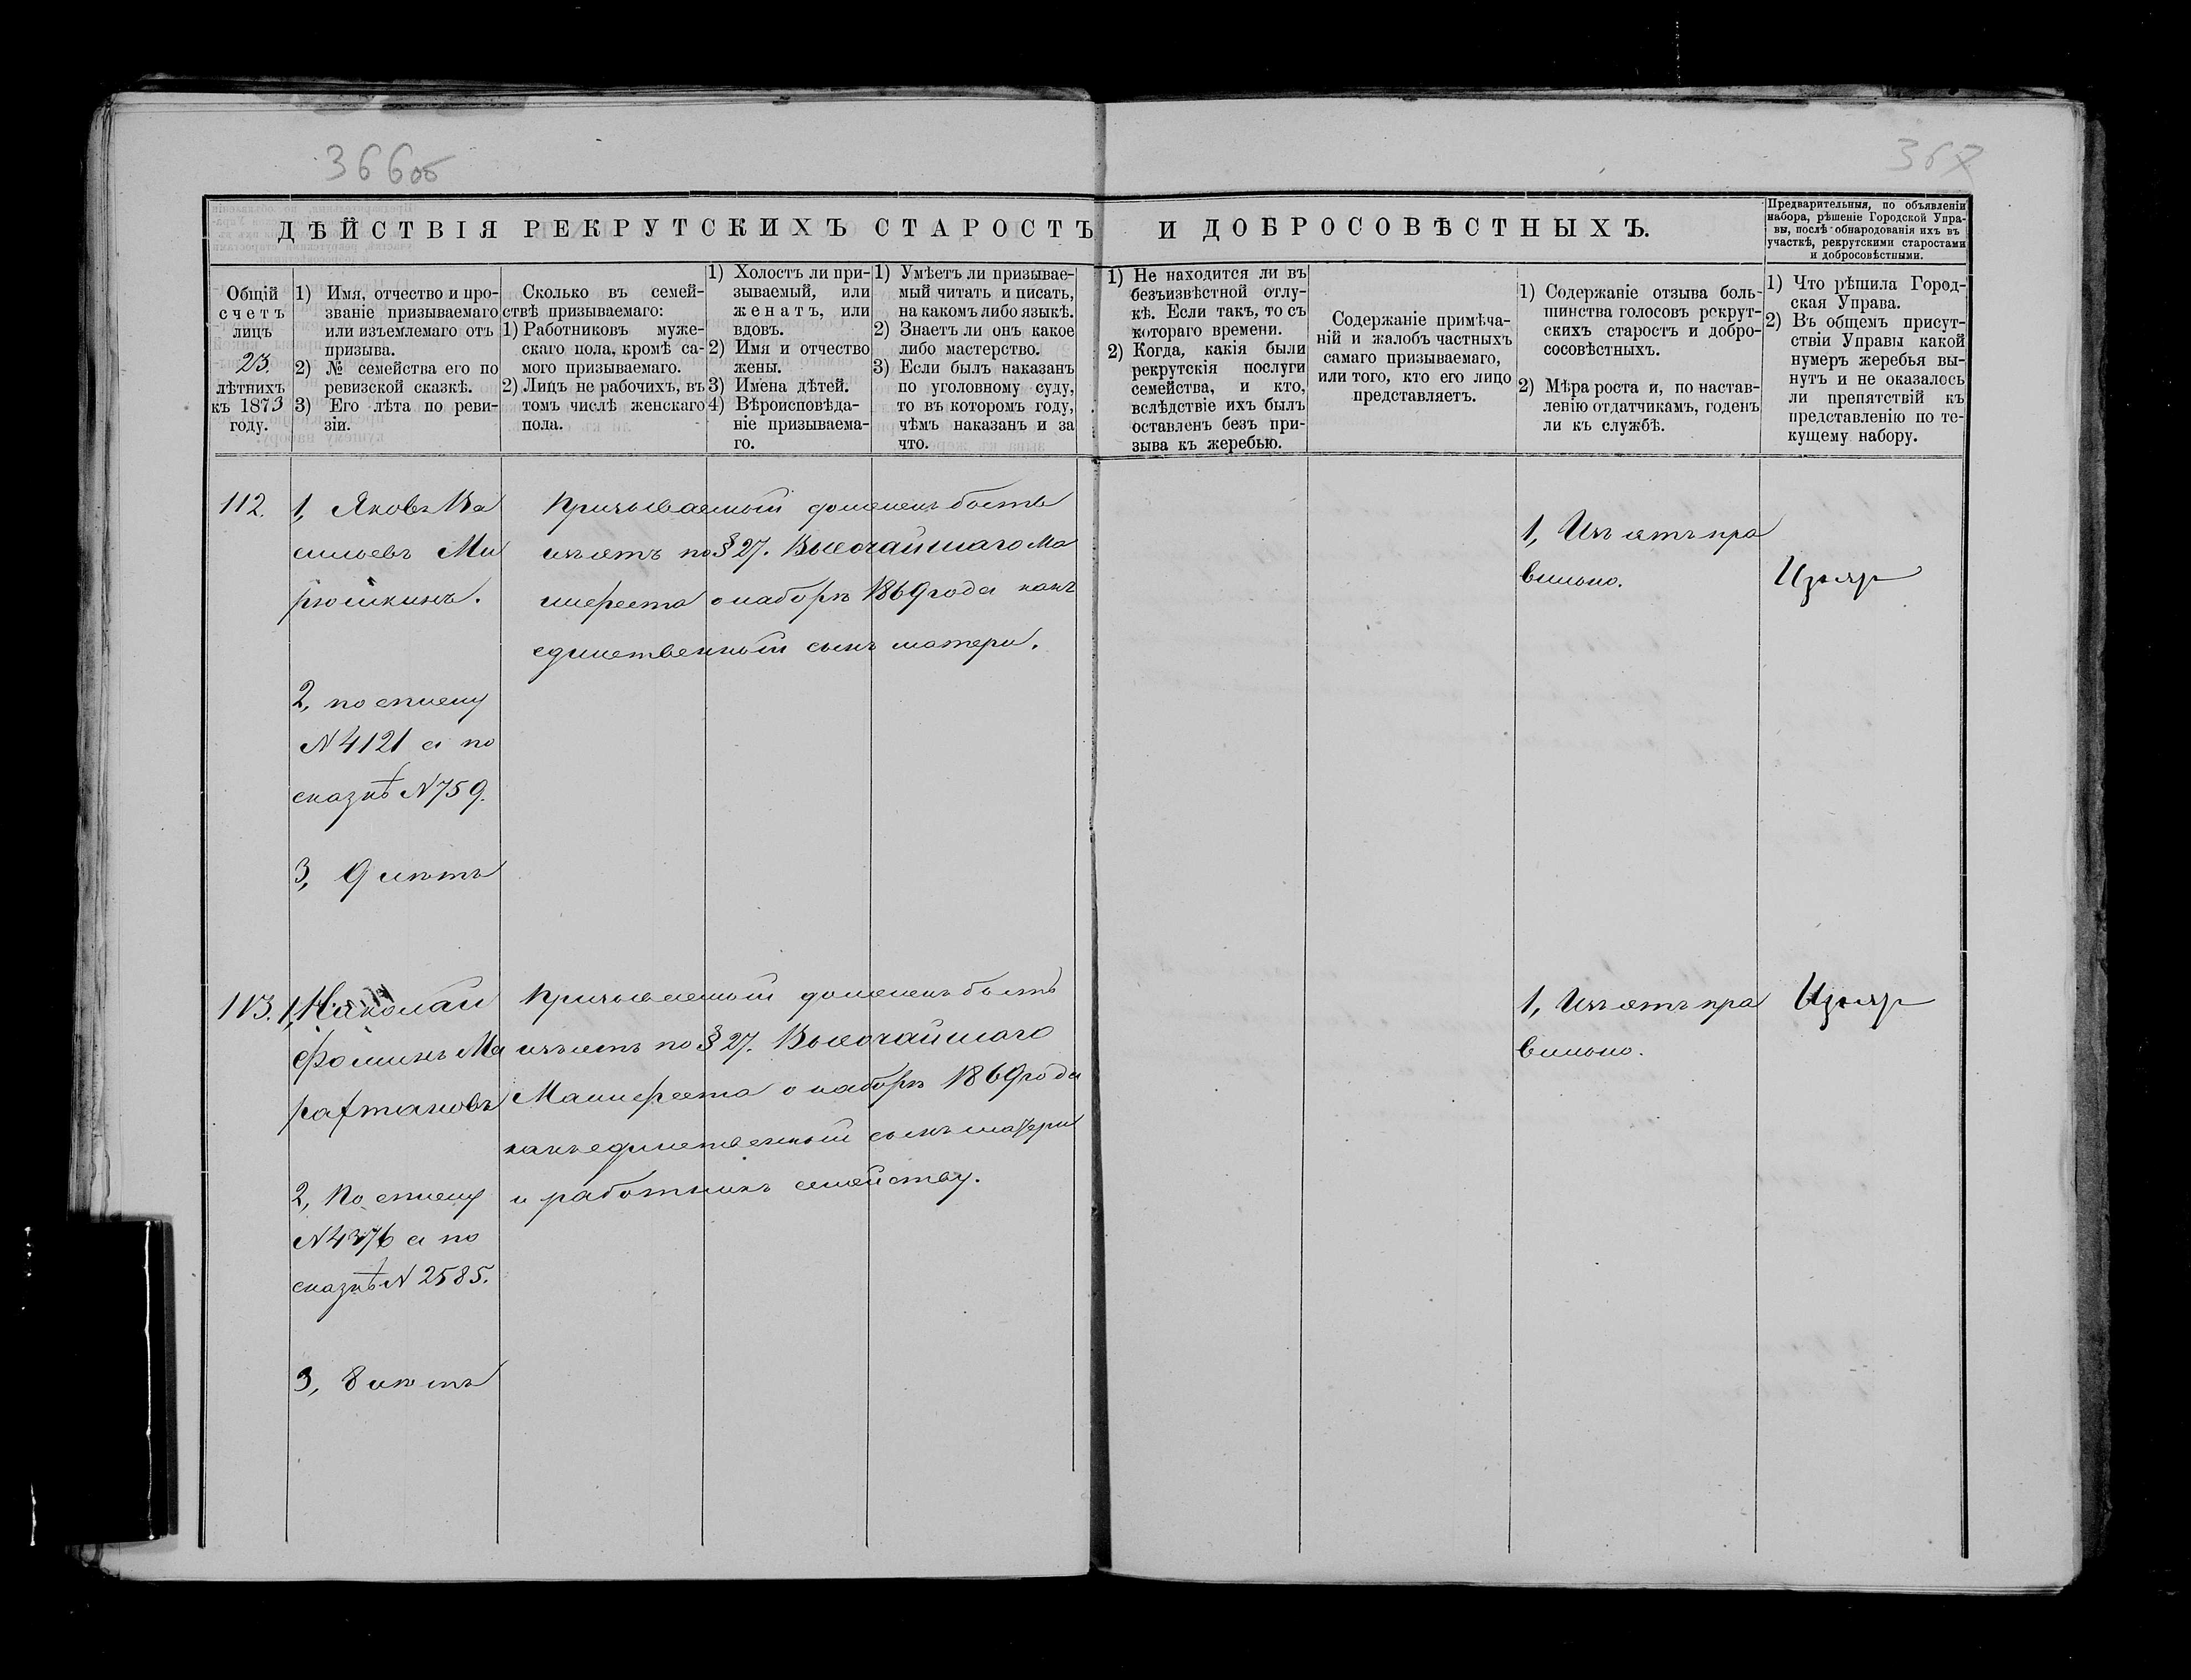 366об
367
ДѢЙСТВІЯ РЕКРУТСКИХЪ СТАРОСТЪ И ДОБРОСОВѢСТНЫХЪ.
Предварительныя, по объявленіи
набора, рѣшеніе Городской Упра-
вы, послѣ обнародованія ихъ въ
участкѣ, рекрутскими старостами
и добросовѣстными.
Общій
счетъ
лицъ
23
лѣтнихъ
къ 1873
году.
1) Имя, отчество и про-
званіе призываемаго
или изъемлемаго отъ
призыва.
2) № семейства его по
ревизской сказкѣ.
3) Его лѣта по реви-
зіи.
Сколько въ семей-
ствѣ призываемаго:
1) Работниковъ муже-
скаго пола, кромѣ са-
мого призываемаго.
2) Лицъ не рабочихъ, въ
томъ числѣ женскаго
пола.
1) Холостъ ли при-
зываемый, или
женатъ, или
вдовъ.
2) Имя и отчество
жены.
3) Имена дѣтей.
4) Вѣроисповѣда-
ніе призываема-
го.
1) Умѣетъ ли призывае-
мый читать и писать,
на какомъ либо языкѣ.
2) Знаетъ ли онъ какое
либо мастерство.
3) Если былъ наказанъ
по уголовному суду,
то въ которомъ году,
чѣмъ наказанъ и за
что.
1) Не находится ли въ
безъизвѣстной отлу-
кѣ. Если такъ, то съ
котораго времени.
2) Когда, какія были
рекрутскія послуги
семейства, и кто,
вслѣдствіе ихъ былъ
оставленъ безъ при-
зыва къ жеребью.
Содержаніе примѣча-
ній и жалобъ частныхъ
самаго призываемаго,
или того, кто его лицо
представляетъ.
1) Содержаніе отзыва боль-
шинства голосовъ рекрут-
скихъ старостъ и добро-
сосовѣстныхъ.
2) Мѣра роста и, по настав-
ленію отдатчикамъ, годенъ
ли къ службѣ.
1) Что рѣшила Город-
ская Управа.
2) Въ общемъ присут-
ствіи Управы какой
нумеръ жеребья вы-
нутъ и не оказалось
ли препятствій къ
представленію по те-
кущему набору.
112.
1, Яковъ Ва
сильевъ Ми
рюшкинъ.
2, по списку
N 4121 а по
сказкѣ N 759.
3, 9 лѣтъ
Призываемый долженъ быть
изъятъ по § 27. Высочайшаго Ма
нифеста о наборѣ 1869 года какъ
единственный сынъ матери.
1, Изъятъ пра
вильно.
113.
1, Николай
Фоминъ Ма
2, По списку
N 4376 а по
сказкѣ N 2585.
3, 8 лѣтъ
Призываемый долженъ быть
изъятъ по § 27. Высочайшаго
Манифеста о наборѣ 1869 года
какъ единственный сынъ матери
и работникъ семейству.
1, Изъятъ пра
вильно.